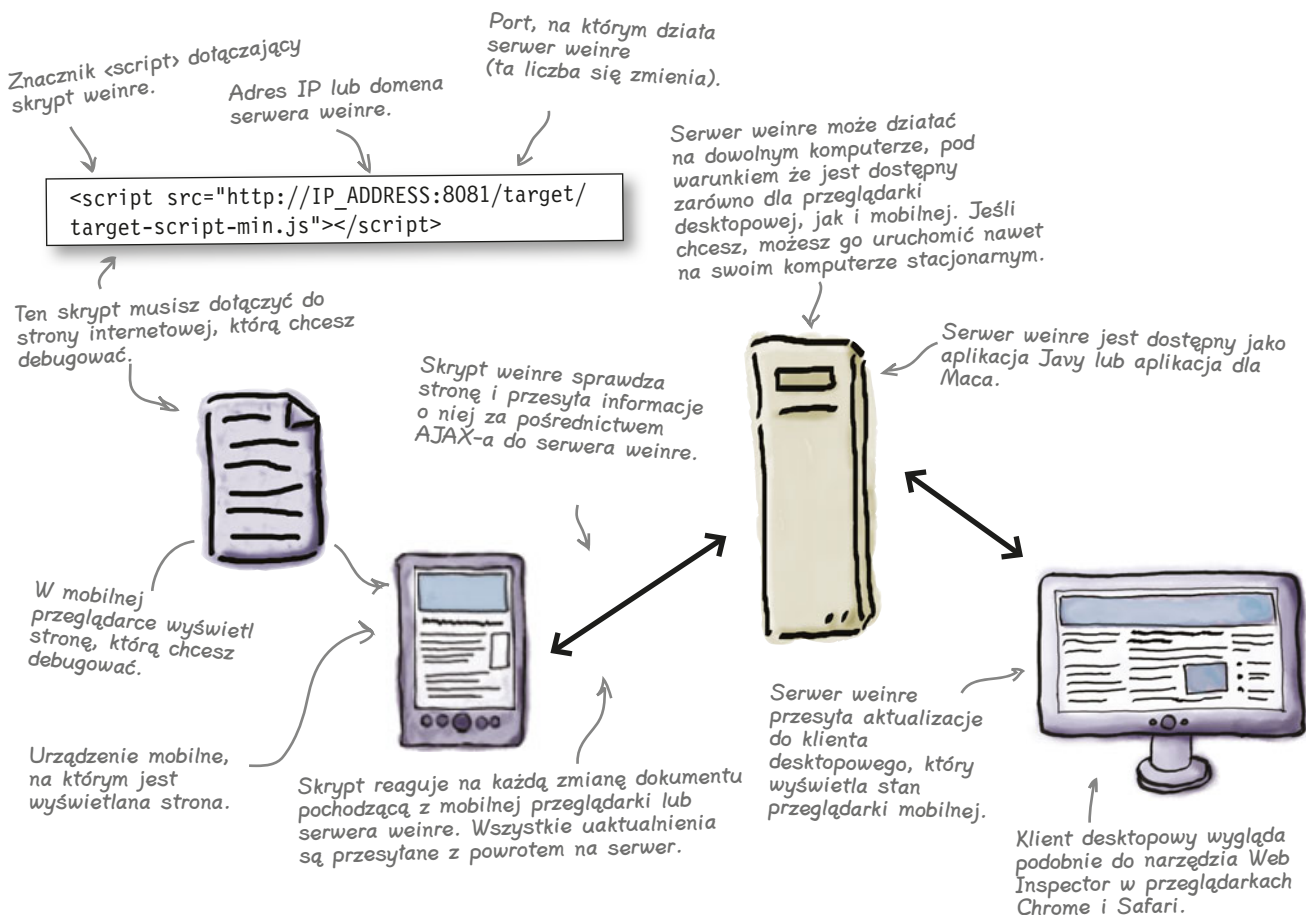 Znacznik <script> dołączający
skrypt weinre.
Adres IP lub domena
serwera weinre.
Port, na którym działa
serwer weinre
(ta liczba się zmienia).
<script src="http://IP_ADDRESS:8081/target/
target-script-min.js"></script>
Ten skrypt musisz dołączyć do
strony internetowej, którą chcesz
debugować.
Serwer weinre może działać
na dowolnym komputerze, pod
warunkiem że jest dostępny
zarówno dla przeglądarki
desktopowej, jak i mobilnej. Jeśli
chcesz, możesz go uruchomić nawet
na swoim komputerze stacjonarnym.
Serwer weinre jest dostępny jako
aplikacja Javy lub aplikacja dla
Maca.
Skrypt weinre sprawdza
stronę i przesyła informacje
o niej za pośrednictwem
AJAX-a do serwera weinre.
W mobilnej
przeglądarce wyświetl
stronę, którą chcesz
debugować.
Urządzenie mobilne,
na którym jest
wyświetlana strona.
Skrypt reaguje na każdą zmianę dokumentu
pochodzącą z mobilnej przeglądarki lub
serwera weinre. Wszystkie uaktualnienia
są przesyłane z powrotem na serwer.
Serwer weinre
przesyła aktualizacje
do klienta
desktopowego, który
wyświetla stan
przeglądarki mobilnej.
Klient desktopowy wygląda
podobnie do narzędzia Web
Inspector w przeglądarkach
Chrome i Safari.